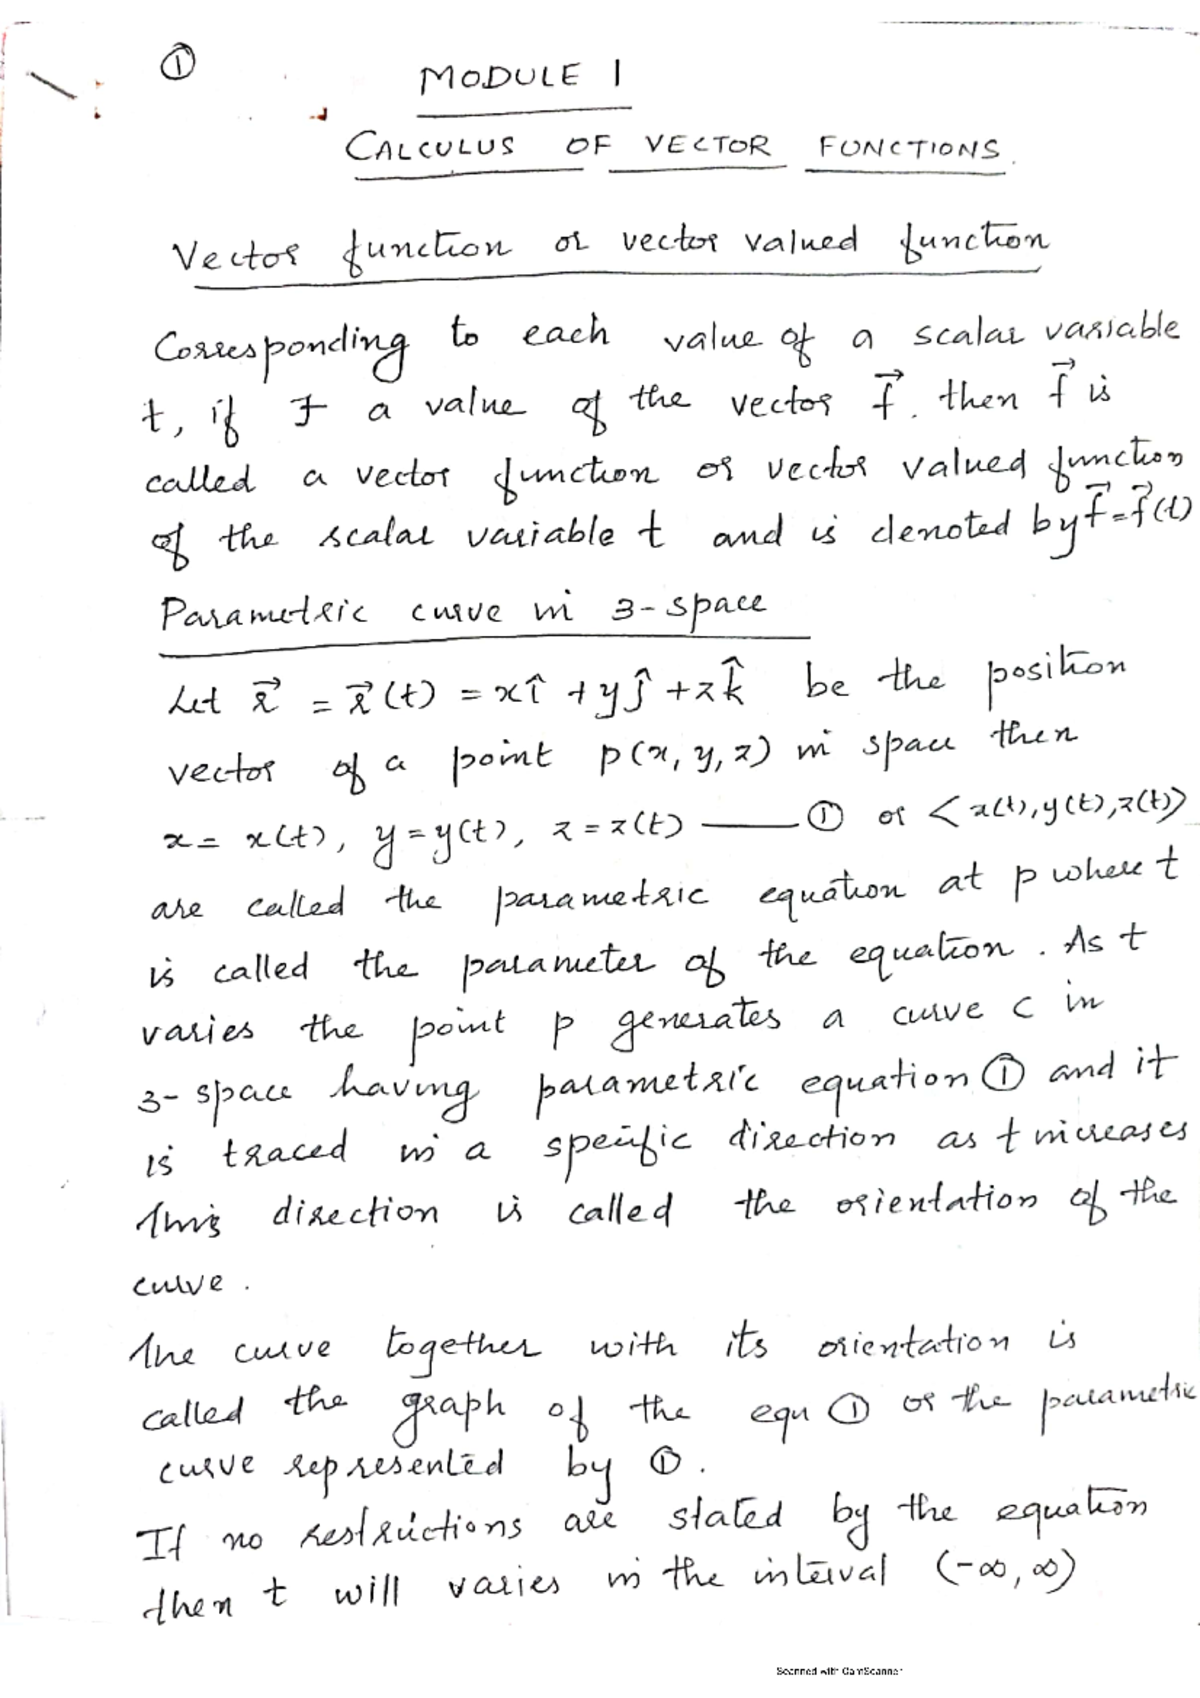 ①
MODULE 1
CALCULUS OF VECTOR FUNCTIONS.
Vector function or vector valued function
Corresponding to each value of a scalar variable
t, if ∃ a value of the vector f⃗. then f⃗ is
called a vector function or vector valued function
of the scalar variable t and is denoted by f⃗=f⃗(t)
Parametric curve in 3-space
Let r⃗ = r⃗(t) = xî + yĵ + zk̂ be the position
vector of a point p(x, y, z) in space then
x = x(t), y = y(t), z = z(t) —— ① or <x(t), y(t), z(t)>
are called the parametric equation at p where t
is called the parameter of the equation. As t
varies the point p generates a curve c in
3-space having parametric equation ① and it
is traced in a specific direction as t increases
This direction is called the orientation of the
curve.
The curve together with its orientation is
called the graph of the equ ① or the parametric
curve represented by ①.
If no restrictions are stated by the equation
then t will varies in the interval (-∞, ∞)
Scanned with CamScanner